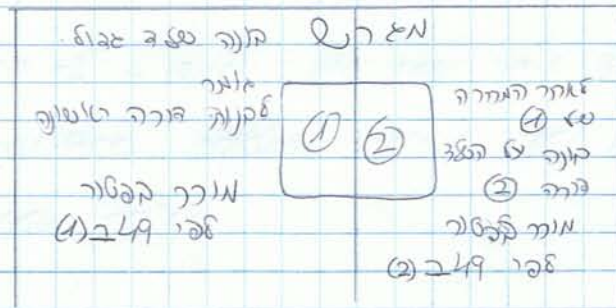 מגרש
בונה שלד גדול.
גומר
לבנות דירה ראשונה
מוכר בפטור
לפי 49ב(1)
1
2
לאחר המכירה
של 1
בונה על השלד
דירה 2
מוכר בפטור
לפי 49ב(2)